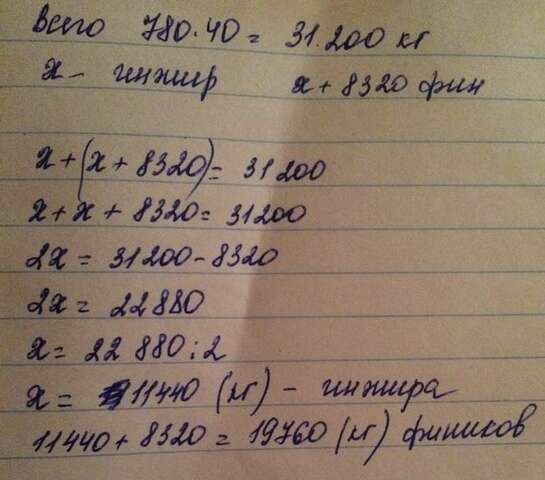 Всего 780·40 = 31.200 кг
х – инжир х + 8320 фин
х + (х + 8320) = 31200
х + х + 8320 = 31200
2х = 31200 – 8320
2х = 22880
х = 22 880 : 2
х = 11440 (кг) – инжира
11440 + 8320 = 19760 (кг) фиников